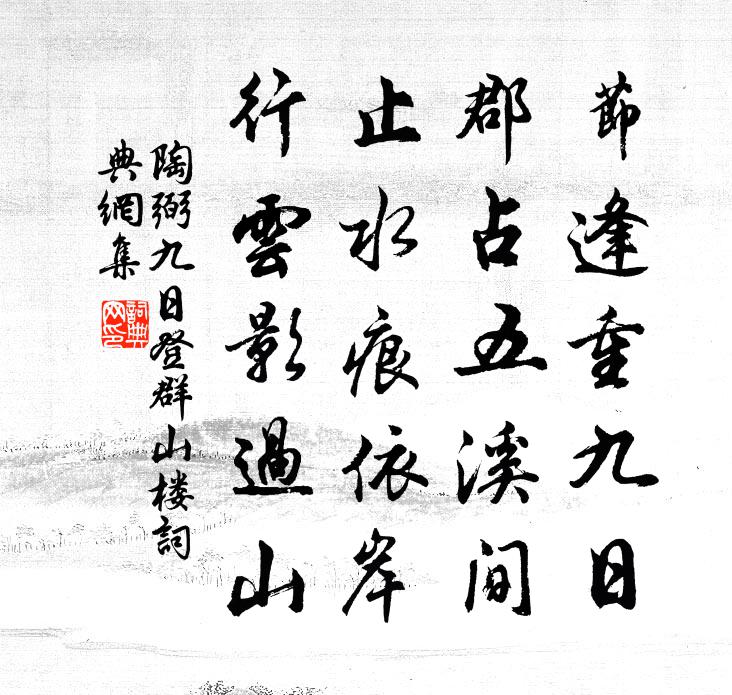 節逢重九日
郡占五溪間
止水痕依岸
行雲影過山
陶弼九日登群山楼詞
典網集
詞典
网印